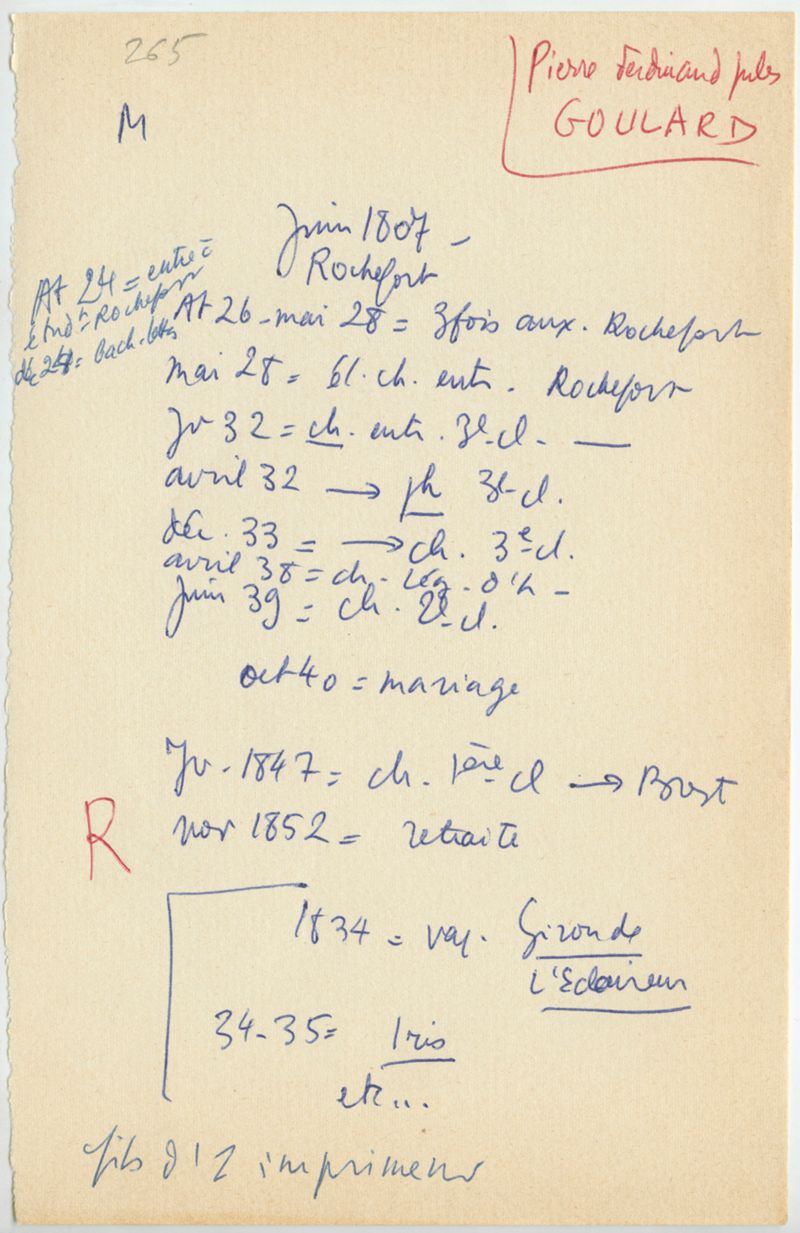 265
Pierre Ferdinand Jules
GOULARD
M
Juin 1807 -
Rochefort
At 24 = entrée
étudt = Rochefort
déc 24 = bach. letts
At 26 - mai 28 = 3 fois aux. Rochefort
mai 28 = él. ch. entr. Rochefort
Jv 32 = ch. entr. 3e cl. —
avril 32 → ph 3e cl.
déc. 33 = → ch. 3e cl.
avril 38 = ch. Lég. d'h -
Juin 39 = ch. 2e cl.
oct 40 = mariage
Jv. 1847 = ch. 1ère cl → Brest
R
nov 1852 = retraite
1834 = vap. Gironde
L'Eclaireur
34-35 = Iris
etc...
fils d'1 imprimeur